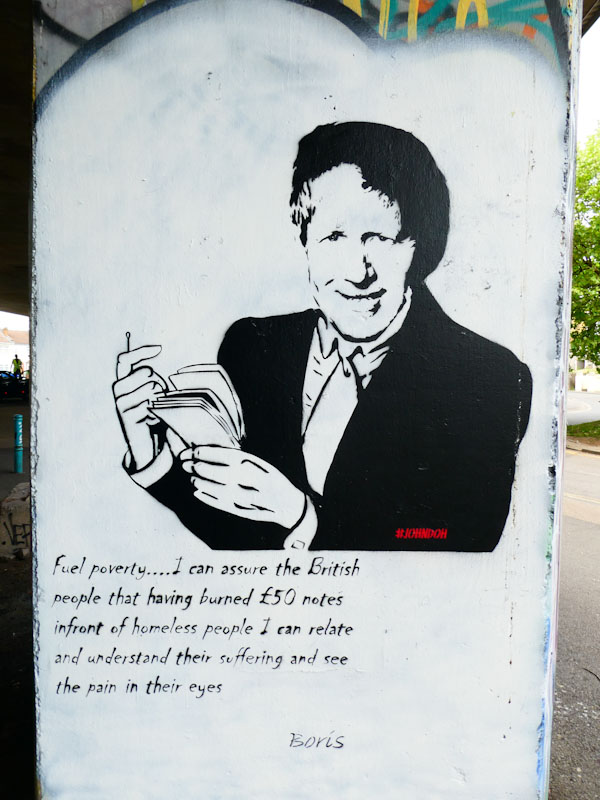 #JOHNDOH
Fuel poverty....I can assure the British
people that having burned £50 notes
infront of homeless people I can relate
and understand their suffering and see
the pain in their eyes
Boris